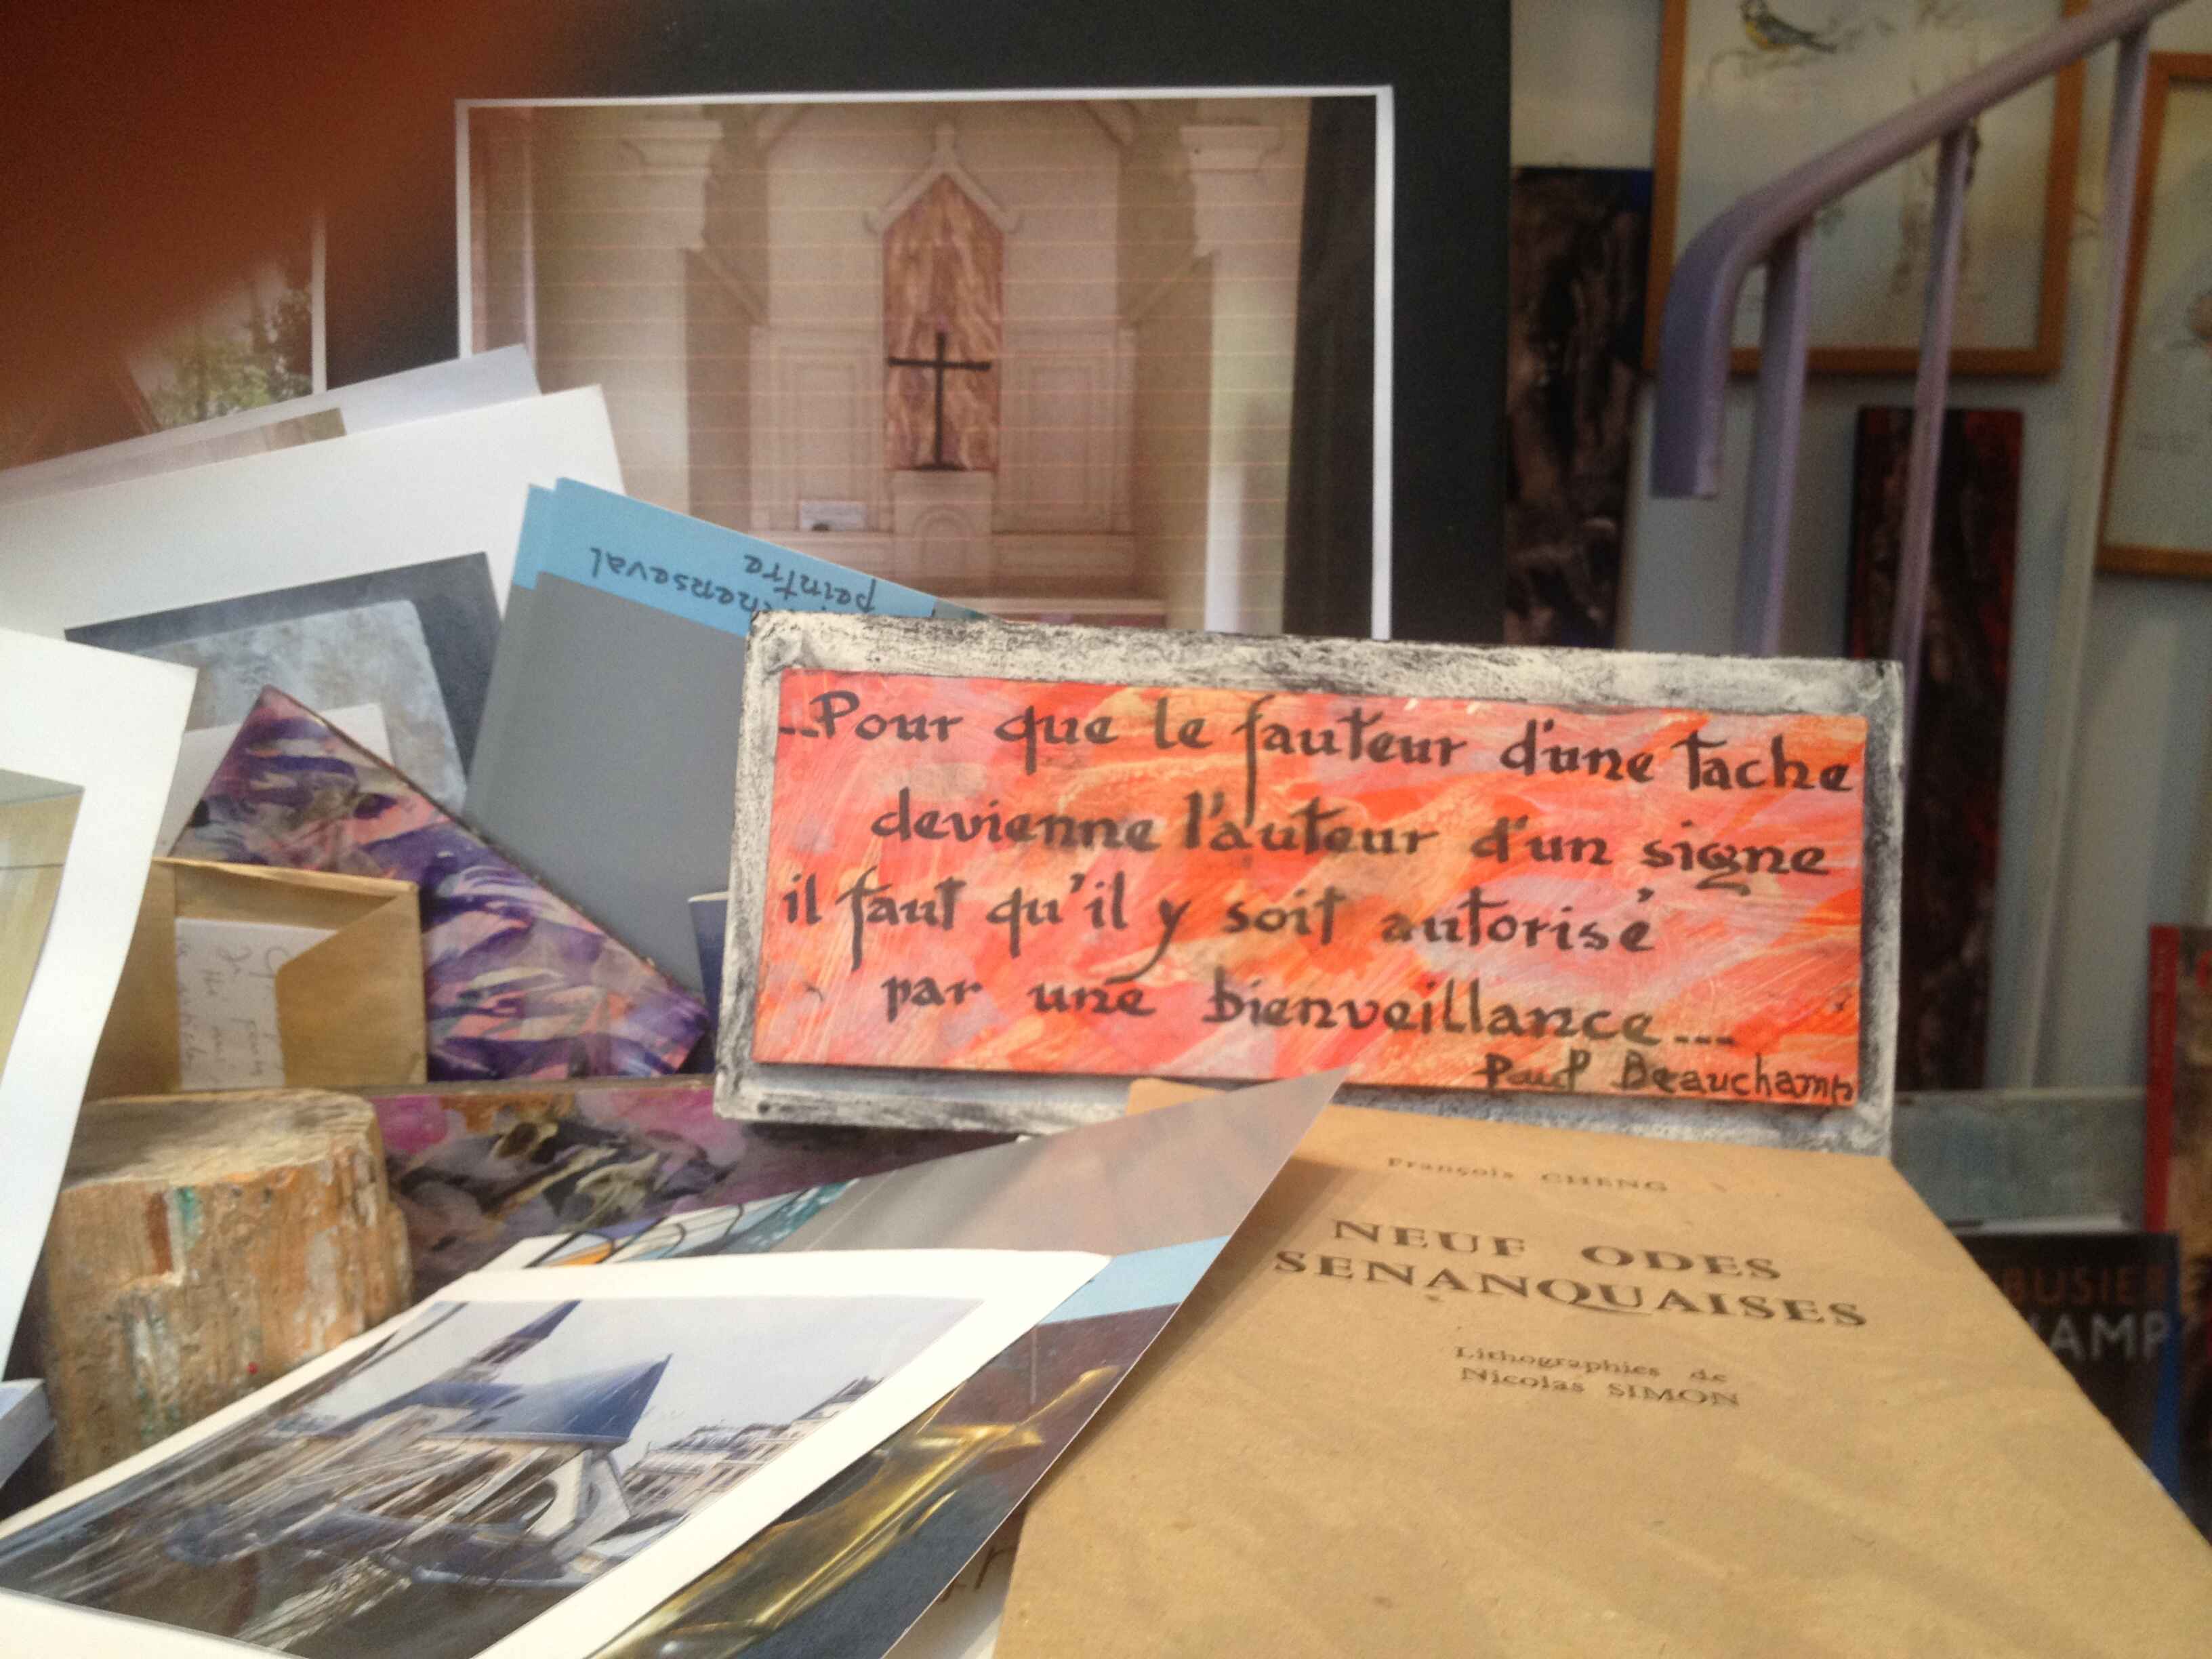 peintre
...Pour que le fauteur d'une tache
devienne l'auteur d'un signe
il faut qu'il y soit autorisé
par une bienveillance...
Paul Beauchamp
François CHENG
NEUF ODES
SENANQUAISES
Lithographies de
Nicolas SIMON